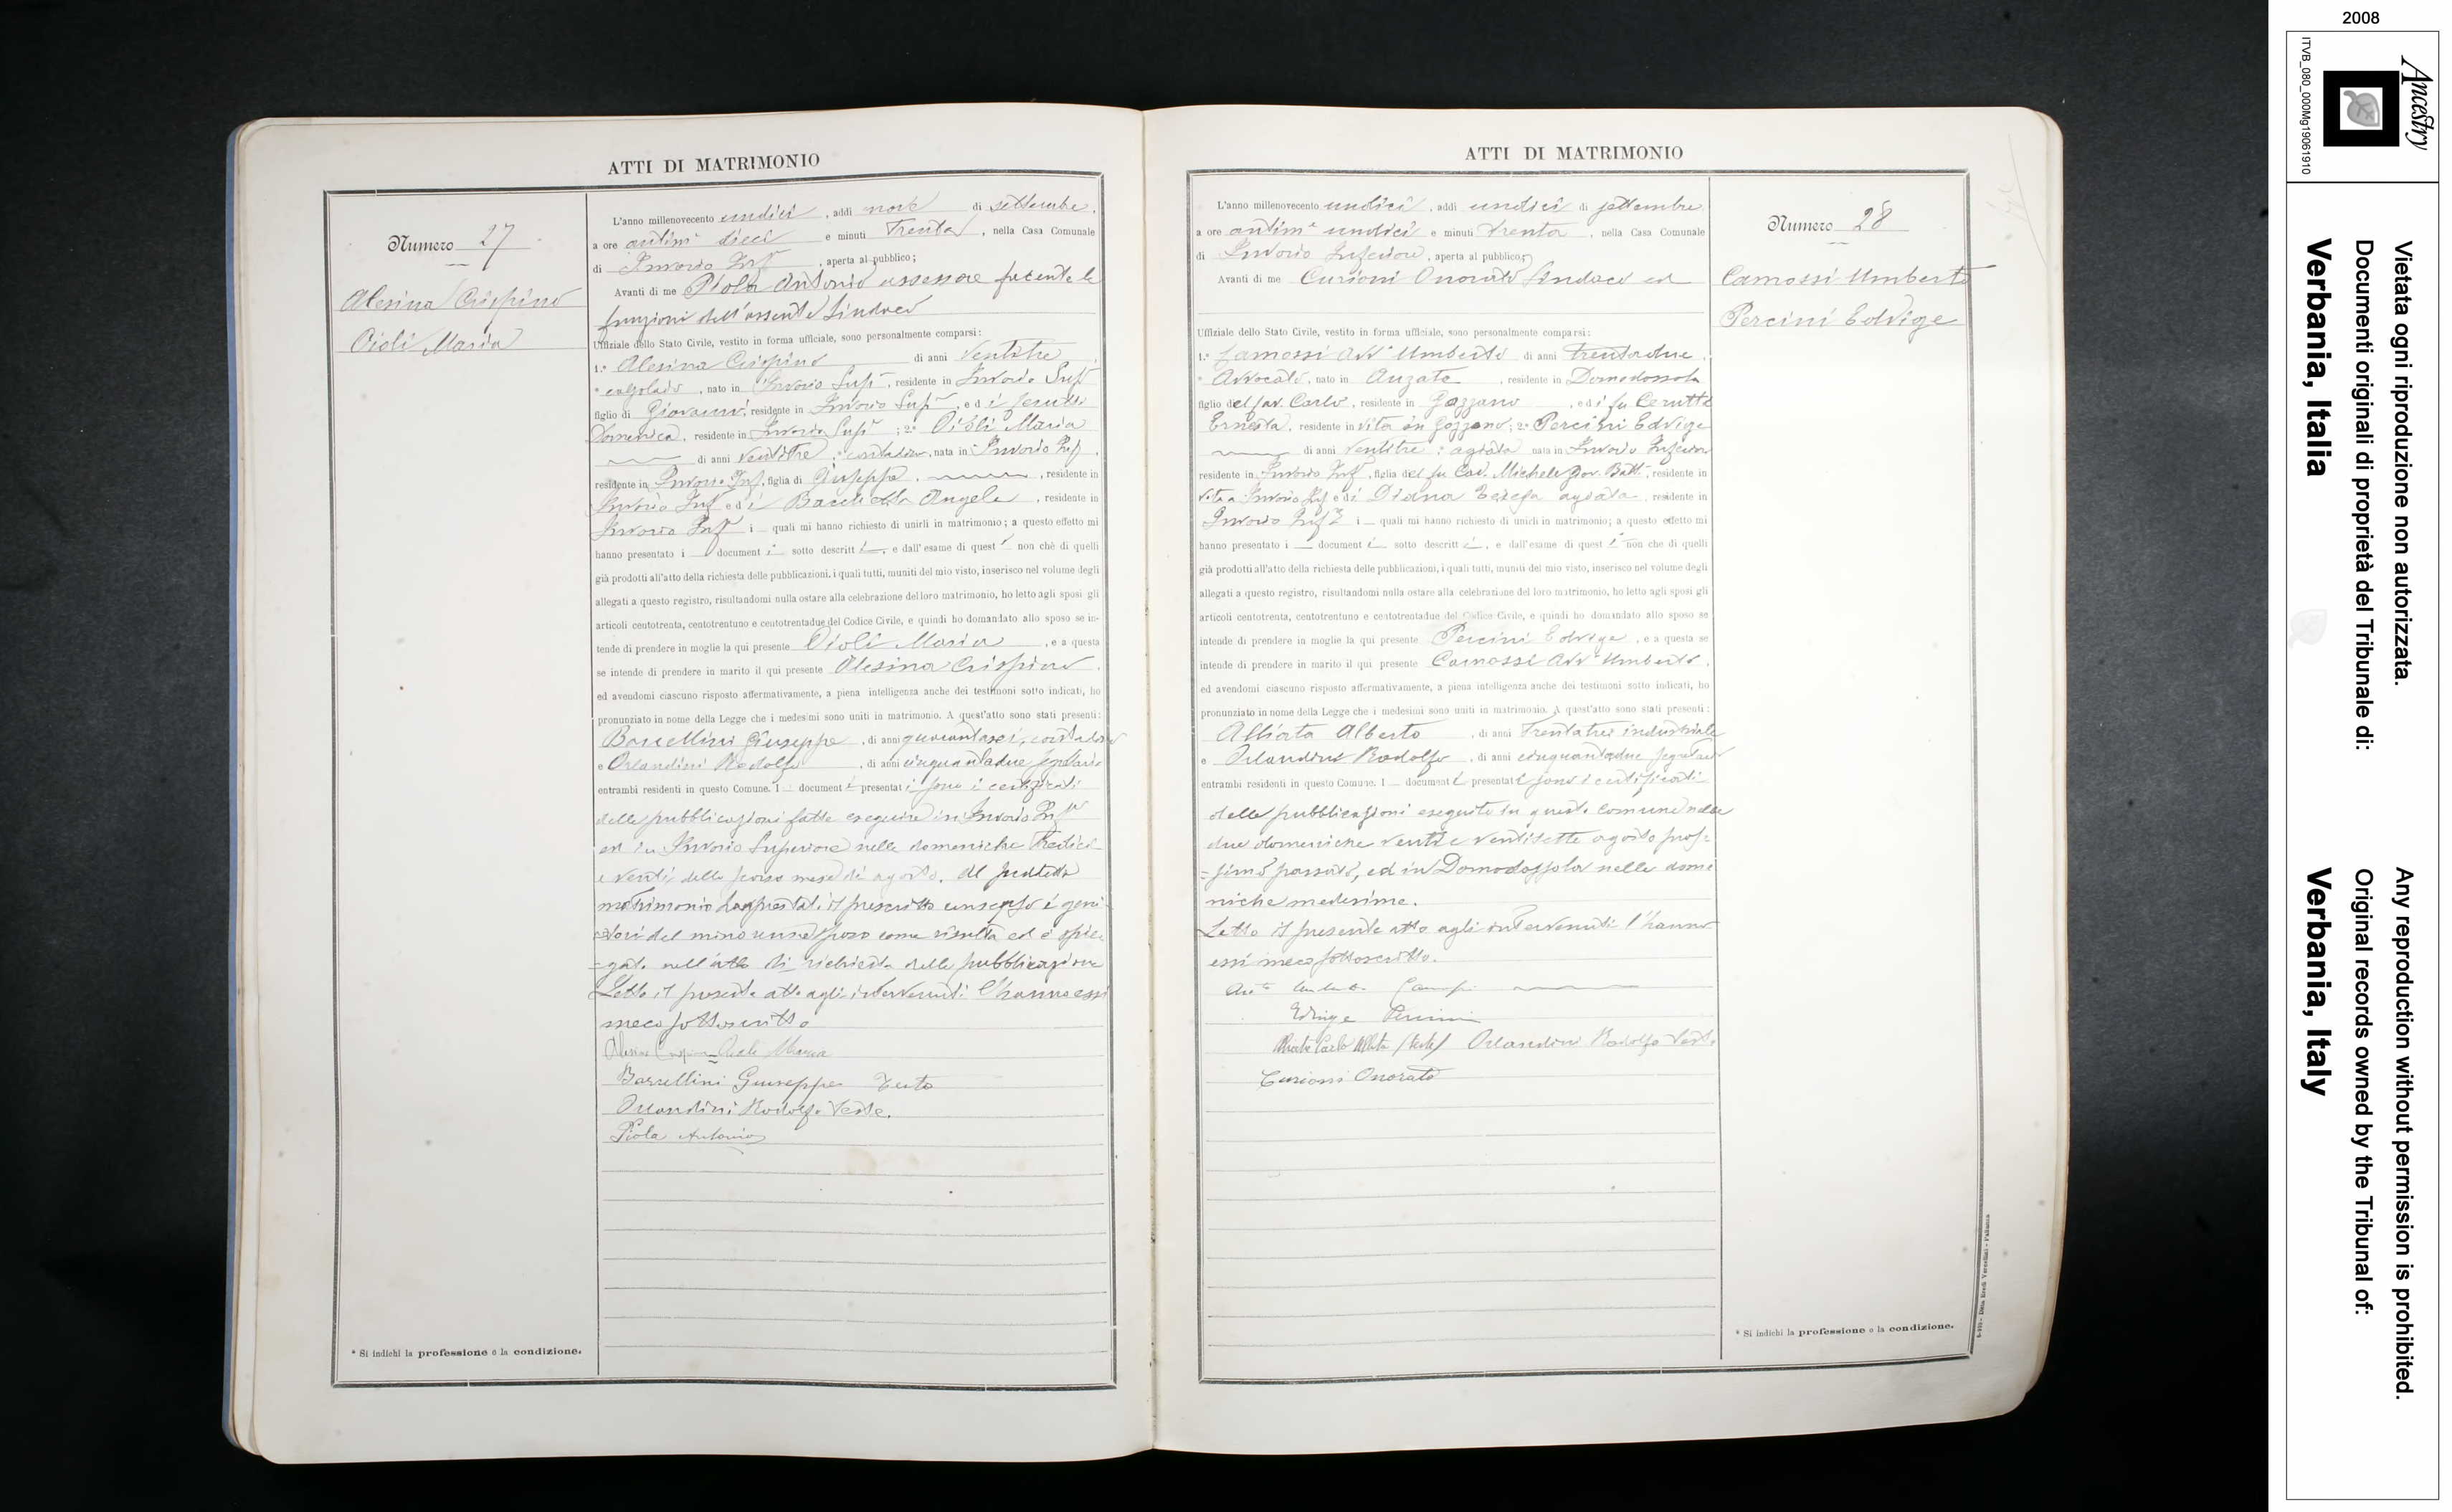 ATTI DI MATRIMONIO
Numero 27
Alesina Crispino
Dioli Maria
L'anno millenovecento undici, addì nove di settembre,
a ore antimne dieci e minuti trenta, nella Casa Comunale
di Invorio Infre, aperta al pubblico;
Avanti di me Piola Antonio assessore facente le
funzioni dell'assente Sindaco
Uffiziale dello Stato Civile, vestito in forma ufficiale, sono personalmente comparsi:
1.º Alesina Crispino di anni ventitre,
* calzolaio, nato in Invorio Supre, residente in Invorio Supre
figlio di Giovanni, residente in Invorio Supre, e di
Domenica, residente in Invorio Supre; 2.º Dioli Maria
di anni ventitre, * contadina, nata in Invorio Inf,
residente in Invorio Inf, figlia di Giuseppe, residente in
Invorio Infre e di Bacchetta Angela, residente in
Invorio Infre i quali mi hanno richiesto di unirli in matrimonio; a questo effetto mi
hanno presentato i documenti sotto descritti, e dall'esame di questi non chè di quelli
già prodotti all'atto della richiesta delle pubblicazioni, i quali tutti, muniti del mio visto, inserisco nel volume degli
allegati a questo registro, risultandomi nulla ostare alla celebrazione del loro matrimonio, ho letto agli sposi gli
articoli centotrenta, centotrentuno e centotrentadue del Codice Civile, e quindi ho domandato allo sposo se in-
tende di prendere in moglie la qui presente Dioli Maria, e a questa
se intende di prendere in marito il qui presente Alesina Crispino,
ed avendomi ciascuno risposto affermativamente, a piena intelligenza anche dei testimoni sotto indicati, ho
pronunziato in nome della Legge che i medesimi sono uniti in matrimonio. A quest'atto sono stati presenti:
Barcellini Giuseppe, di anni quarantasei, contadino
e Orlandini Rodolfo, di anni cinquantadue segretario
entrambi residenti in questo Comune. I documenti presentati sono i certificati
delle pubblicazioni fatte eseguire in Invorio Infre
ed in Invorio Superiore nelle domeniche tredici
e venti dello scorso mese di agosto. Al predetto
matrimonio han prestato il prescritto consenso i geni-
tori del minorenne sposo come risulta ed è spie-
gato nell'atto di richiesta delle pubblicazione
Letto il presente atto agli intervenuti l'hanno essi
meco sottoscritto
Alesina Crispino Dioli Maria
Barcellini Giuseppe Teste
Orlandini Rodolfo Teste.
Piola Antonio
* Si indichi la professione o la condizione.
ATTI DI MATRIMONIO
Numero 28
Camossi Umberto
Percini Edvige
L'anno millenovecento undici, addì undici di settembre,
a ore antimne undici e minuti trenta, nella Casa Comunale
di Invorio Inferiore, aperta al pubblico;
Avanti di me Curioni Onorato Sindaco ed
Uffiziale dello Stato Civile, vestito in forma ufficiale, sono personalmente comparsi:
1.º Camossi Avvo Umberto di anni trentadue,
* Avvocato, nato in Auzate, residente in Domodossola
figlio del Cav. Carlo, residente in Gozzano, e di fu Cerutti
Ernesta, residente in vita in Gozzano; 2.º Percini Edvige
di anni ventitre * agiata nata in Invorio Inferiore
residente in Invorio Infre, figlia del fu Cav. Michele Gov. Batt., residente in
vita a Invorio Inf e di Diana Teresa agiata, residente in
Invorio Infre i quali mi hanno richiesto di unirli in matrimonio; a questo effetto mi
hanno presentato i documenti sotto descritti, e dall'esame di questi non che di quelli
già prodotti all'atto della richiesta delle pubblicazioni, i quali tutti, muniti del mio visto, inserisco nel volume degli
allegati a questo registro, risultandomi nulla ostare alla celebrazione del loro matrimonio, ho letto agli sposi gli
articoli centotrenta, centotrentuno e centotrentadue del Codice Civile, e quindi ho domandato allo sposo se
intende di prendere in moglie la qui presente Percini Edvige, e a questa se
intende di prendere in marito il qui presente Camossi Avvo Umberto,
ed avendomi ciascuno risposto affermativamente, a piena intelligenza anche dei testimoni sotto indicati, ho
pronunziato in nome della Legge che i medesimi sono uniti in matrimonio. A quest'atto sono stati presenti:
Alliata Alberto, di anni trentatrè industriale
e Orlandini Rodolfo, di anni cinquantadue segretario
entrambi residenti in questo Comune. I documenti presentati sono i certificati
delle pubblicazioni eseguite in questo Comune nelle
due domeniche venti e ventisette agosto pros-
simo passato, ed in Domodossola nelle dome
niche medesime.
Letto il presente atto agli intervenuti l'hanno
essi meco sottoscritto.
Edvige Percini
Alliata (teste) Orlandini Rodolfo Teste
Curioni Onorato
* Si indichi la professione o la condizione.
2008
Ancestry
ITVB_080_000Mg19061910
Vietata ogni riproduzione non autorizzata.
Documenti originali di proprietà del Tribunale di:
Verbania, Italia
Any reproduction without permission is prohibited.
Original records owned by the Tribunal of:
Verbania, Italy